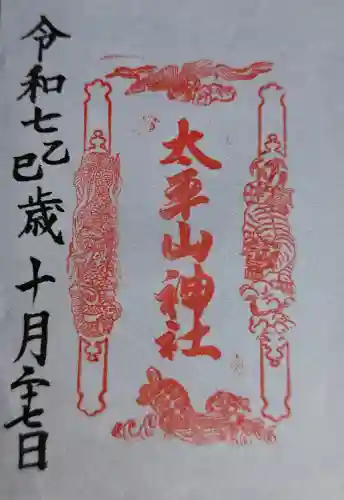 太平山神社
令和七乙巳歳十月二十七日